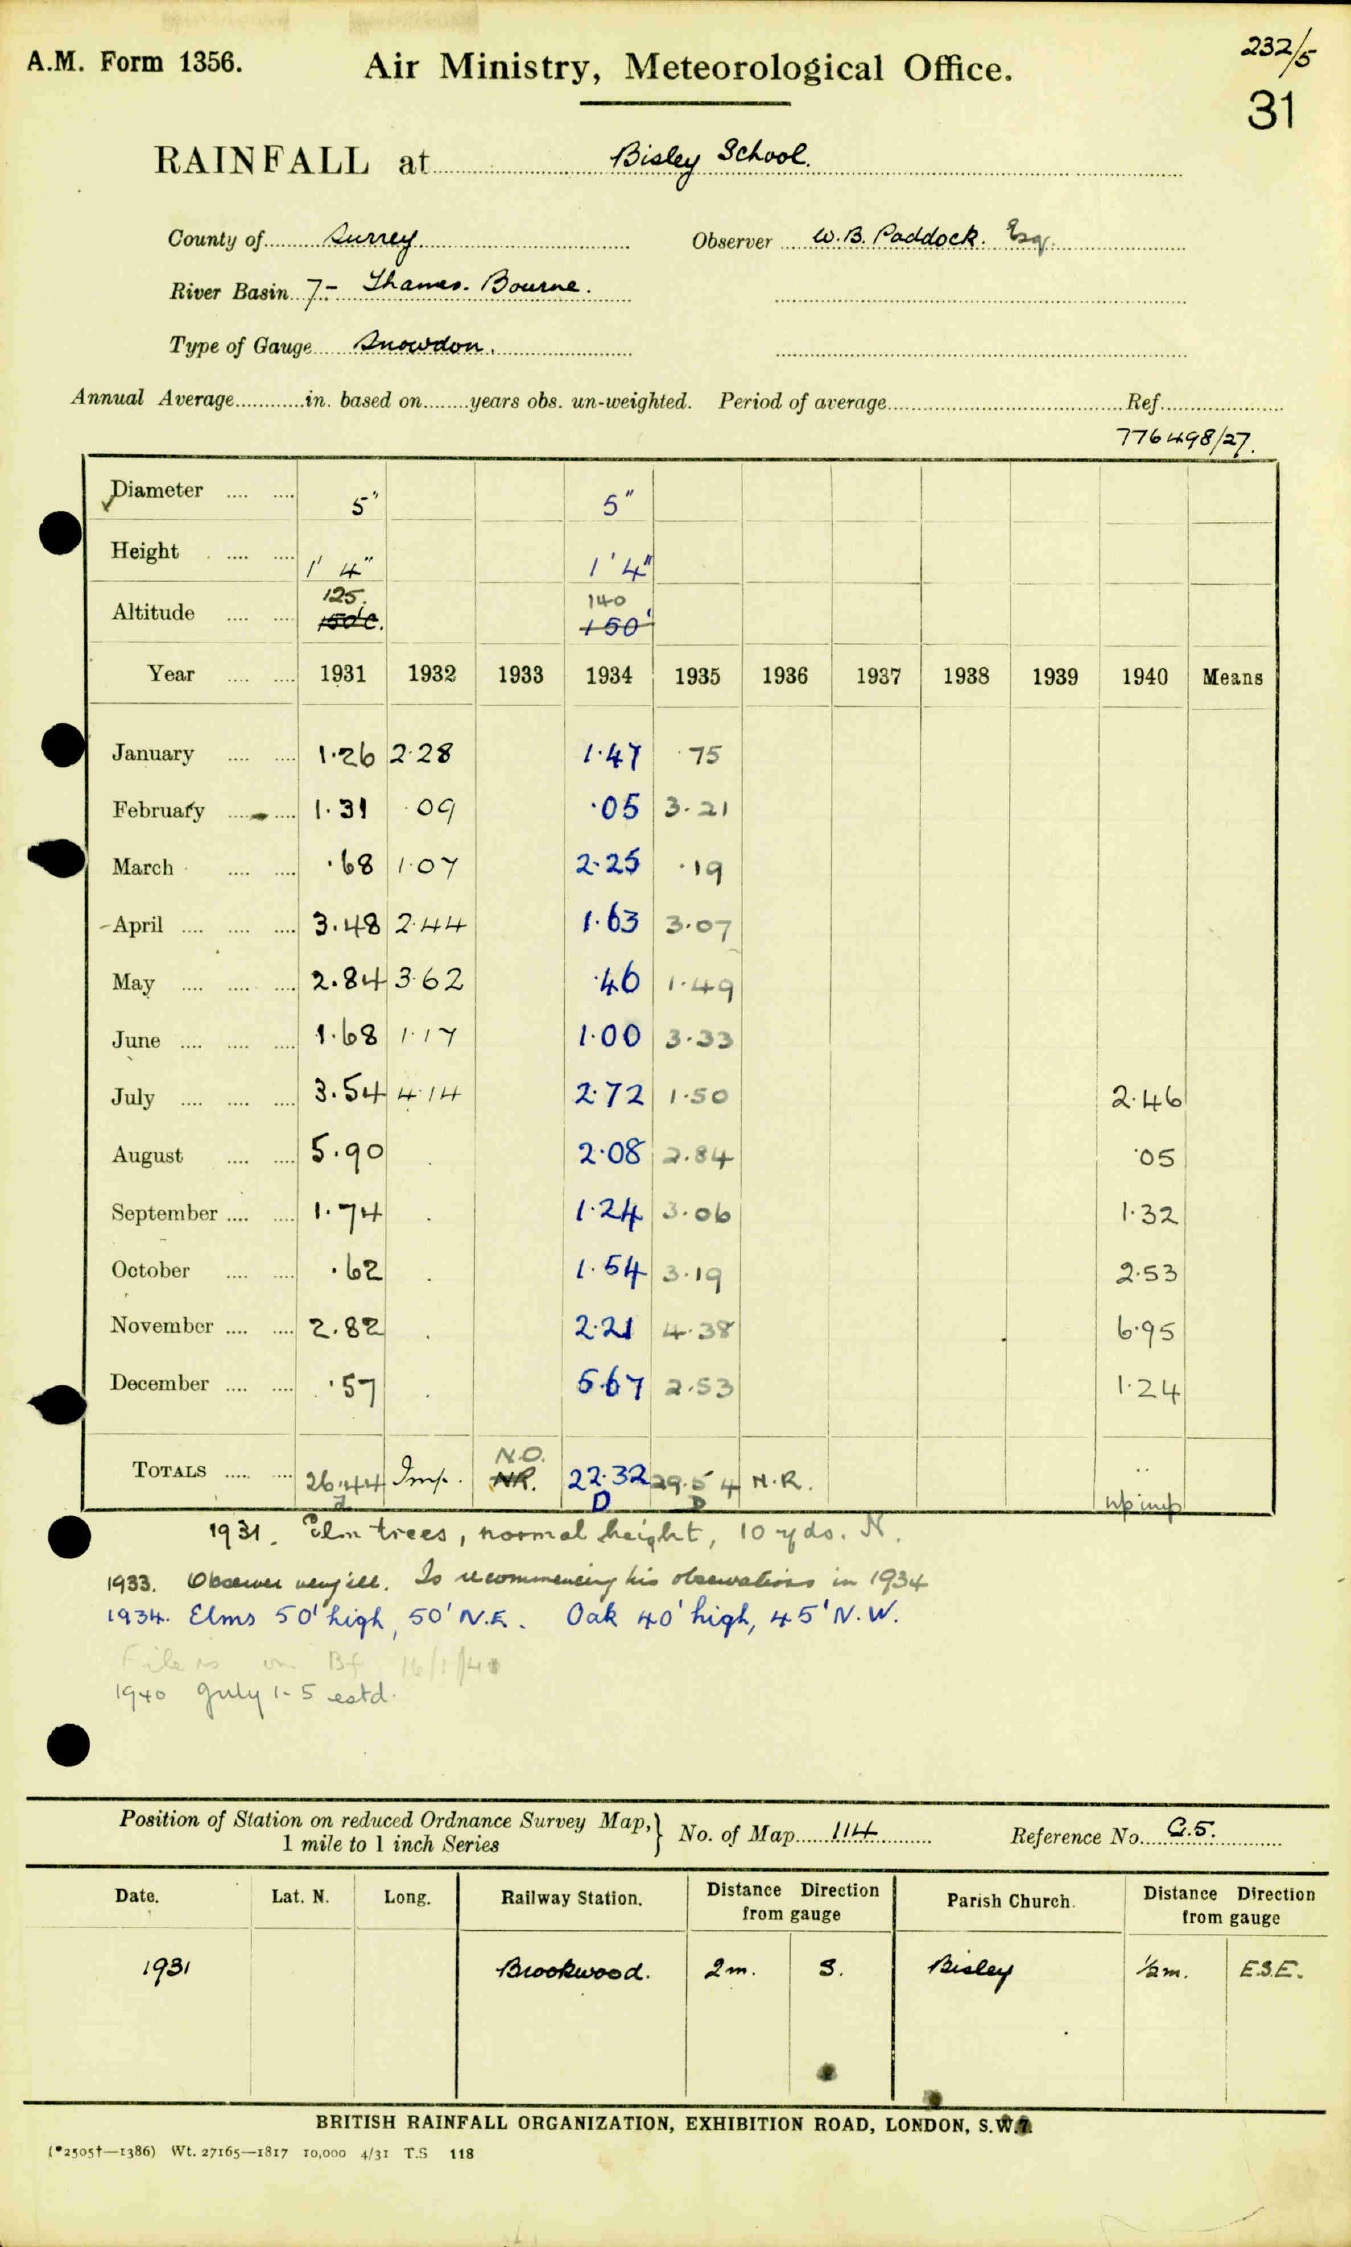 A.M. Form 1356.
Air Ministry, Meteorological Office.
232/5
31
RAINFALL at Bisley School.
County of Surrey Observer W.B. Paddock. Esq.
River Basin 7- Thames. Bourne.
Type of Gauge Snowdon.
Annual Average in. based on years obs. un-weighted. Period of average Ref.
776498/27.
Diameter 5" 5"
Height 1' 4" 1' 4"
125. 140
Altitude 150' C. 150'
Year 1931 1932 1933 1934 1935 1936 1937 1938 1939 1940 Means
January 1.26 2.28 1.47 .75
February 1.31 .09 .05 3.21
March .68 1.07 2.25 .19
April 3.48 2.44 1.63 3.07
May 2.84 3.62 .46 1.49
June 1.68 1.17 1.00 3.33
July 3.54 4.14 2.72 1.50 2.46
August 5.90 . 2.08 2.84 .05
September 1.74 . 1.24 3.06 1.32
October .62 . 1.54 3.19 2.53
November 2.82 . 2.21 4.38 6.95
December .57 . 5.67 2.53 1.24
N.O.
TOTALS 26.44 Imp. NR. 22.32 29.54 N.R. ..
D D np imp
1931. Elm trees, normal height, 10 yds. N.
1933. Observer very ill. Is recommencing his observations in 1934
1934. Elms 50' high, 50' N.E. Oak 40' high, 45' N.W.
1940 July 1-5 estd.
Position of Station on reduced Ordnance Survey Map,
1 mile to 1 inch Series
No. of Map 114 Reference No. G.5.
Date. Lat. N. Long. Railway Station. Distance Direction from gauge Parish Church. Distance Direction from gauge
1931 Brookwood. 2m. S. Bisley ½m. E.S.E.
BRITISH RAINFALL ORGANIZATION, EXHIBITION ROAD, LONDON, S.W.7.
(*2505†—1386) Wt. 27165—1817 10,000 4/31 T.S 118